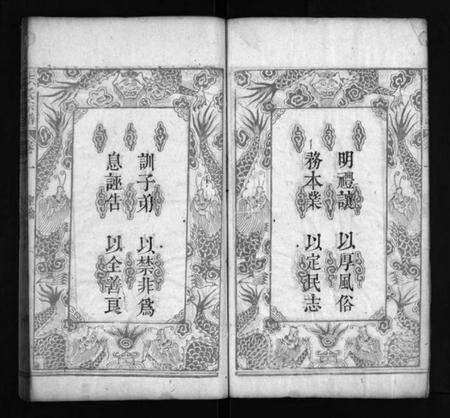 明禮讓 以厚風俗
務本業 以定民志
訓子弟 以禁非為
息誣告 以全善良